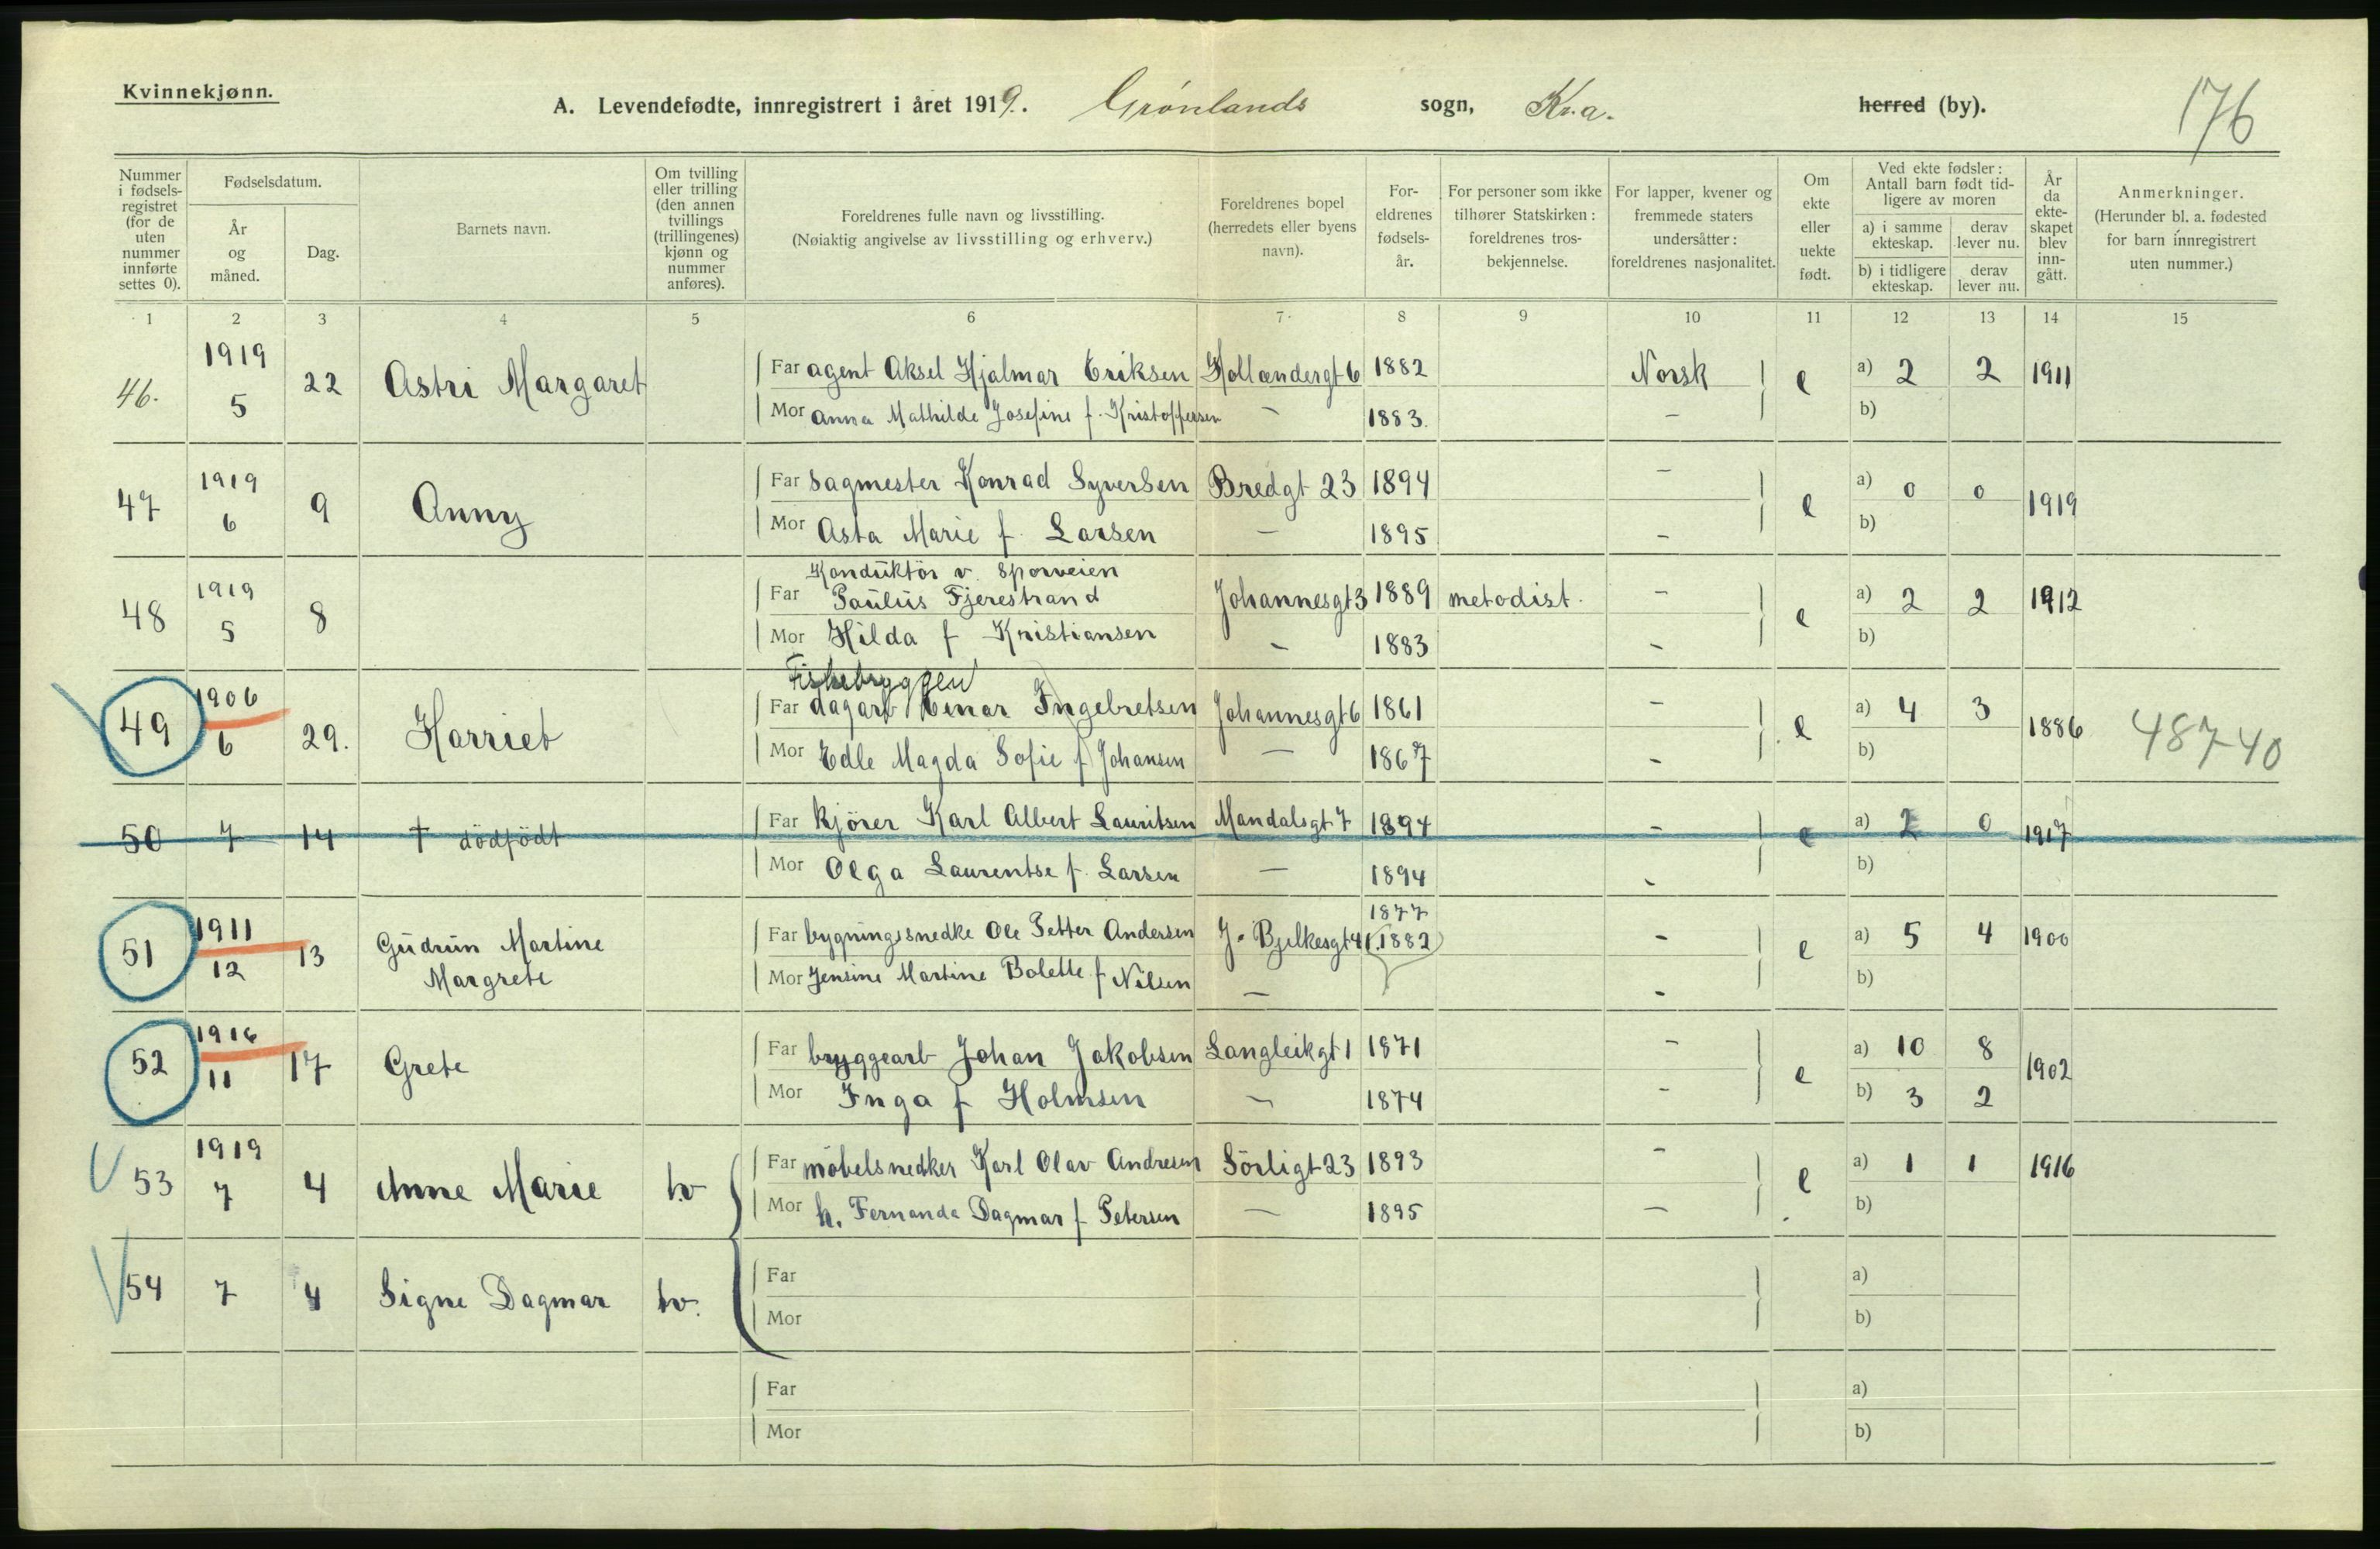 Kvinnekjønn.
A. Levendefødte, innregistrert i året 1919. Grønlands sogn, Kr.a. herred (by).
176
Nummer i fødselsregistret (for de uten nummer innførte settes 0).
Fødselsdatum.
År og måned.
Dag.
Barnets navn.
Om tvilling eller trilling (den annen tvillings (trillingenes) kjønn og nummer anføres).
Foreldrenes fulle navn og livsstilling.
(Nøiaktig angivelse av livsstilling og erhverv.)
Foreldrenes bopel (herredets eller byens navn).
Foreldrenes fødselsår.
For personer som ikke tilhører Statskirken: foreldrenes trosbekjennelse.
For lapper, kvener og fremmede staters undersåtter: foreldrenes nasjonalitet.
Om ekte eller uekte født.
Ved ekte fødsler: Antall barn født tidligere av moren
a) i samme ekteskap. derav lever nu.
b) i tidligere ekteskap. derav lever nu.
År da ekteskapet blev inngått.
Anmerkninger.
(Herunder bl. a. fødested for barn innregistrert uten nummer.)
1 2 3 4 5 6 7 8 9 10 11 12 13 14 15
46. 1919 5 22 Astri Margaret Far agent Aksel Hjalmar Eriksen Hollændergt 6 1882 Norsk e a) 2 2 1911
Mor Anna Mathilde Josefine f. Kristoffersen — 1883. — b)
47 1919 6 9 Anny Far sagmester Konrad Syversen Bredgt 23 1894 — e a) 0 0 1919
Mor Asta Marie f. Larsen — 1895 — b)
Konduktör v. Sporveien
48 1919 5 8 Far Paulus Fjerestrand Johannesgt 3 1889 metodist. — e a) 2 2 1912
Mor Hilda f Kristiansen — 1883 — b)
Fiskebryggen
49 1906 6 29. Harriet Far dagarb Einar Ingebretsen Johannesgt 6 1861 — e a) 4 3 1886 48740
Mor Edle Magda Sofie f Johansen — 1867 — b)
50 7 14 † dödfödt Far kjörer Karl Albert Lauritsen Mandalsgt 7 1894 — e a) 2 0 1917
Mor Olga Laurentse f. Larsen — 1894 — b)
1877
51 1911 12 13 Gudrun Martine Margrete Far bygningssnedke Ole Petter Andersen J. Bjelkesgt 41 (1882) — e a) 5 4 1900
Mor Jensine Martine Bolette f Nilsen — — b)
52 1916 11 17 Grete Far bryggearb Johan Jakobsen Langleikgt 1 1871 — e a) 10 8 1902
Mor Inga f Holmsen — 1874 — b) 3 2
53 1919 7 4 Anne Marie tv Far möbelsnedker Karl Olav Andresen Sörligt 23 1893 — e a) 1 1 1916
Mor h. Fernanda Dagmar f Petersen — 1895 — b)
54 7 4 Signe Dagmar tv. Far a)
Mor b)
Far a)
Mor b)